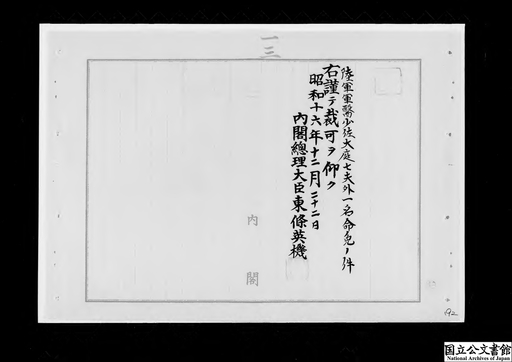 一三
陸軍軍醫少佐大庭七夫外一名命免ノ件
右謹テ裁可ヲ仰ク
昭和十六年十二月二十二日
内閣總理大臣東條英機
内閣
A2
国立公文書館
National Archives of Japan